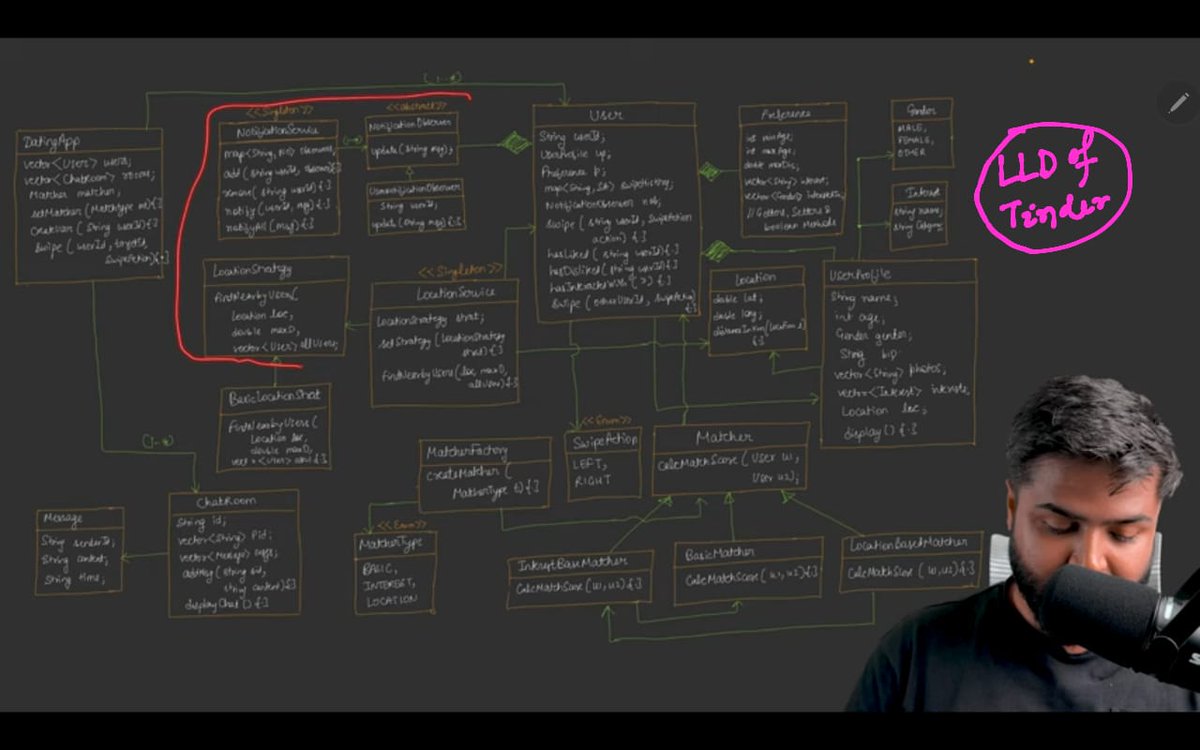 (1..*)
DatingApp
vector<User> users;
vector<ChatRoom> rooms;
Matcher matcher;
setMatcher (MatcherType mt){}
createUser (String userId){}
Swipe ( userId, targetId,
SwipeAction){}
<<Singleton>>
NotificationService
add ( string userId,
remove ( string userId) {}
notify ( userId, msg) {}
notifyAll (msg) {}
<<abstract>>
NotificationObserver
update( String msg);
UserNotificationObserver
String userId;
update ( String msg) {}
User
String userId;
UserProfile up;
Preference p;
NotificationObserver nob;
Swipe ( string userId, SwipeAction
action) {}
hasLiked ( string userId){}
hasDisliked ( string userId){}
Swipe ( otherUserId, SwipeAction)
{}
Preference
int minAge;
int maxAge;
double maxDis;
vector<String> interest;
vector<Gender>
// Getters, Setters &
boolean Methods
Gender
MALE,
FEMALE,
OTHER
Interest
string name;
string Category;
LLD of
Tinder
LocationStrategy
findNearbyUsers(
Location loc,
double maxD,
vector<User> allUsers;
<<Singleton>>
LocationService
LocationStrategy strat;
setStrategy (LocationStrategy
strat) {}
findNearbyUsers (loc, maxD,
allUsers){}
Location
double lat;
double long;
distanceInKm(Location l)
{}
UserProfile
String name;
int age;
Gender gender;
String bio;
vector<String> photos;
vector<Interest> interests;
Location loc;
display() {}
BasicLocationStrat
findNearbyUsers (
Location loc,
double maxD,
(1..*)
MatcherFactory
createMatcher (
MatcherType t) {}
<<Enum>>
SwipeAction
LEFT,
RIGHT
Matcher
CalcMatchScore ( User u1,
User u2);
Message
String senderId;
String content;
String time;
ChatRoom
String id;
vector<String> pid;
vector<Message> msgs;
addMsg ( string sid,
string content){}
displayChat () {}
<<Enum>>
MatcherType
BASIC,
INTEREST,
LOCATION
InterestBaseMatcher
CalcMatchScore (u1, u2) {}
BasicMatcher
CalcMatchScore ( u1, u2) {}
LocationBasedMatcher
CalcMatchScore ( u1, u2) {}